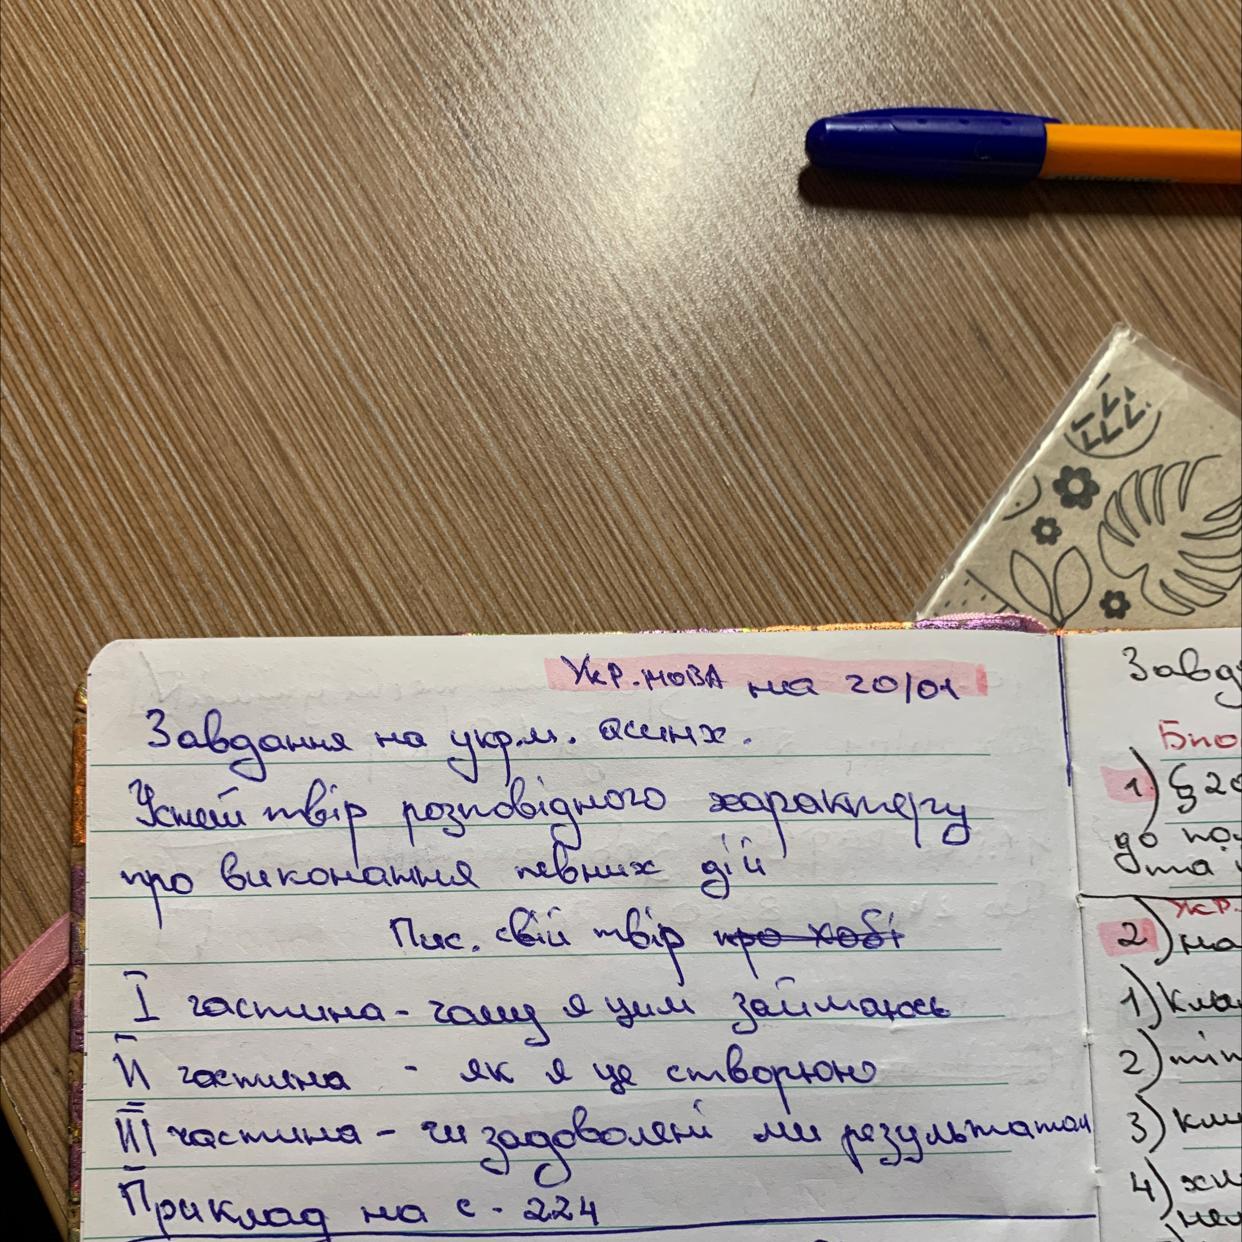 Укр.мова на 20/01
Завдання на укр.м. асинх.
Усний твір розповідного характеру
про виконання певних дій
Пис. свій твір про хобі
I частина - чому я цим займаюсь
II частина - як я це створюю
III частина - чи задоволені ми результатом
Приклад на с. 224
Завд
Біо
1) § 20
до
та
2) Укр.
на
1)
2)
3)
4)